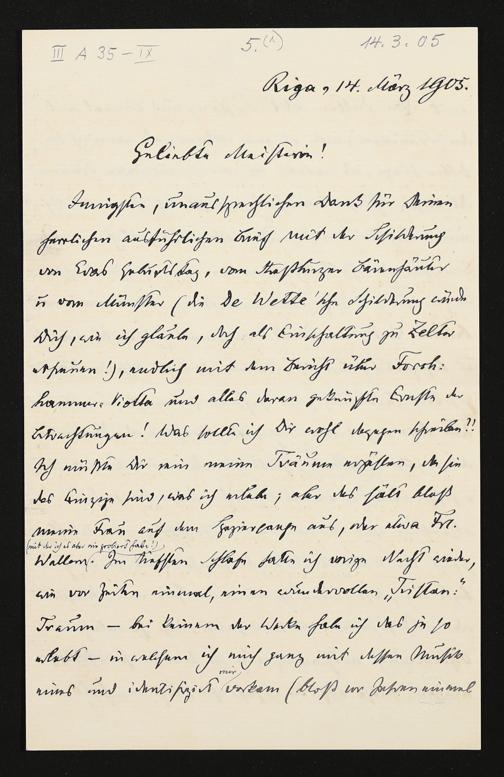 III A 35 – IX
5. (1)
14.3.05
Riga, 14. März 1905.
Geliebte Meisterin!
Innigsten, unaussprechlichen Dank für Deinen
herrlichen ausführlichen Brief mit der Schilderung
von Evas Geburtstag, vom Straßburger Bärenhäuter
u vom Münster (die De Wette'sche Schilderung würde
Dich, wie ich glaube, doch als Einschaltung zu Zelter
erfreuen!), endlich mit dem Bericht über Forch-
hammer-Viotta und alles daran geknüpfte Ernste der
Betrachtungen! Was sollte ich Dir wohl dagegen schreiben?!
Ich müßte Dir rein meine Träume erzählen, da sie
das Einzige sind, was ich erlebe; aber das hält bloß
meine Frau auf dem Spaziergange aus, oder etwa Frl.
(mit der ich es aber nie probiert habe!)
Wallem. Im tiefsten Schlafe hatte ich vorige Nacht wieder,
wie vor Zeiten einmal, einen wundervollen „Tristan"-
Traum – bei keinem der Werke habe ich das je so
erlebt – in welchem ich mich ganz mit dessen Musik
mir
eines und identifiziert vorkam (bloß vor Jahren einmal